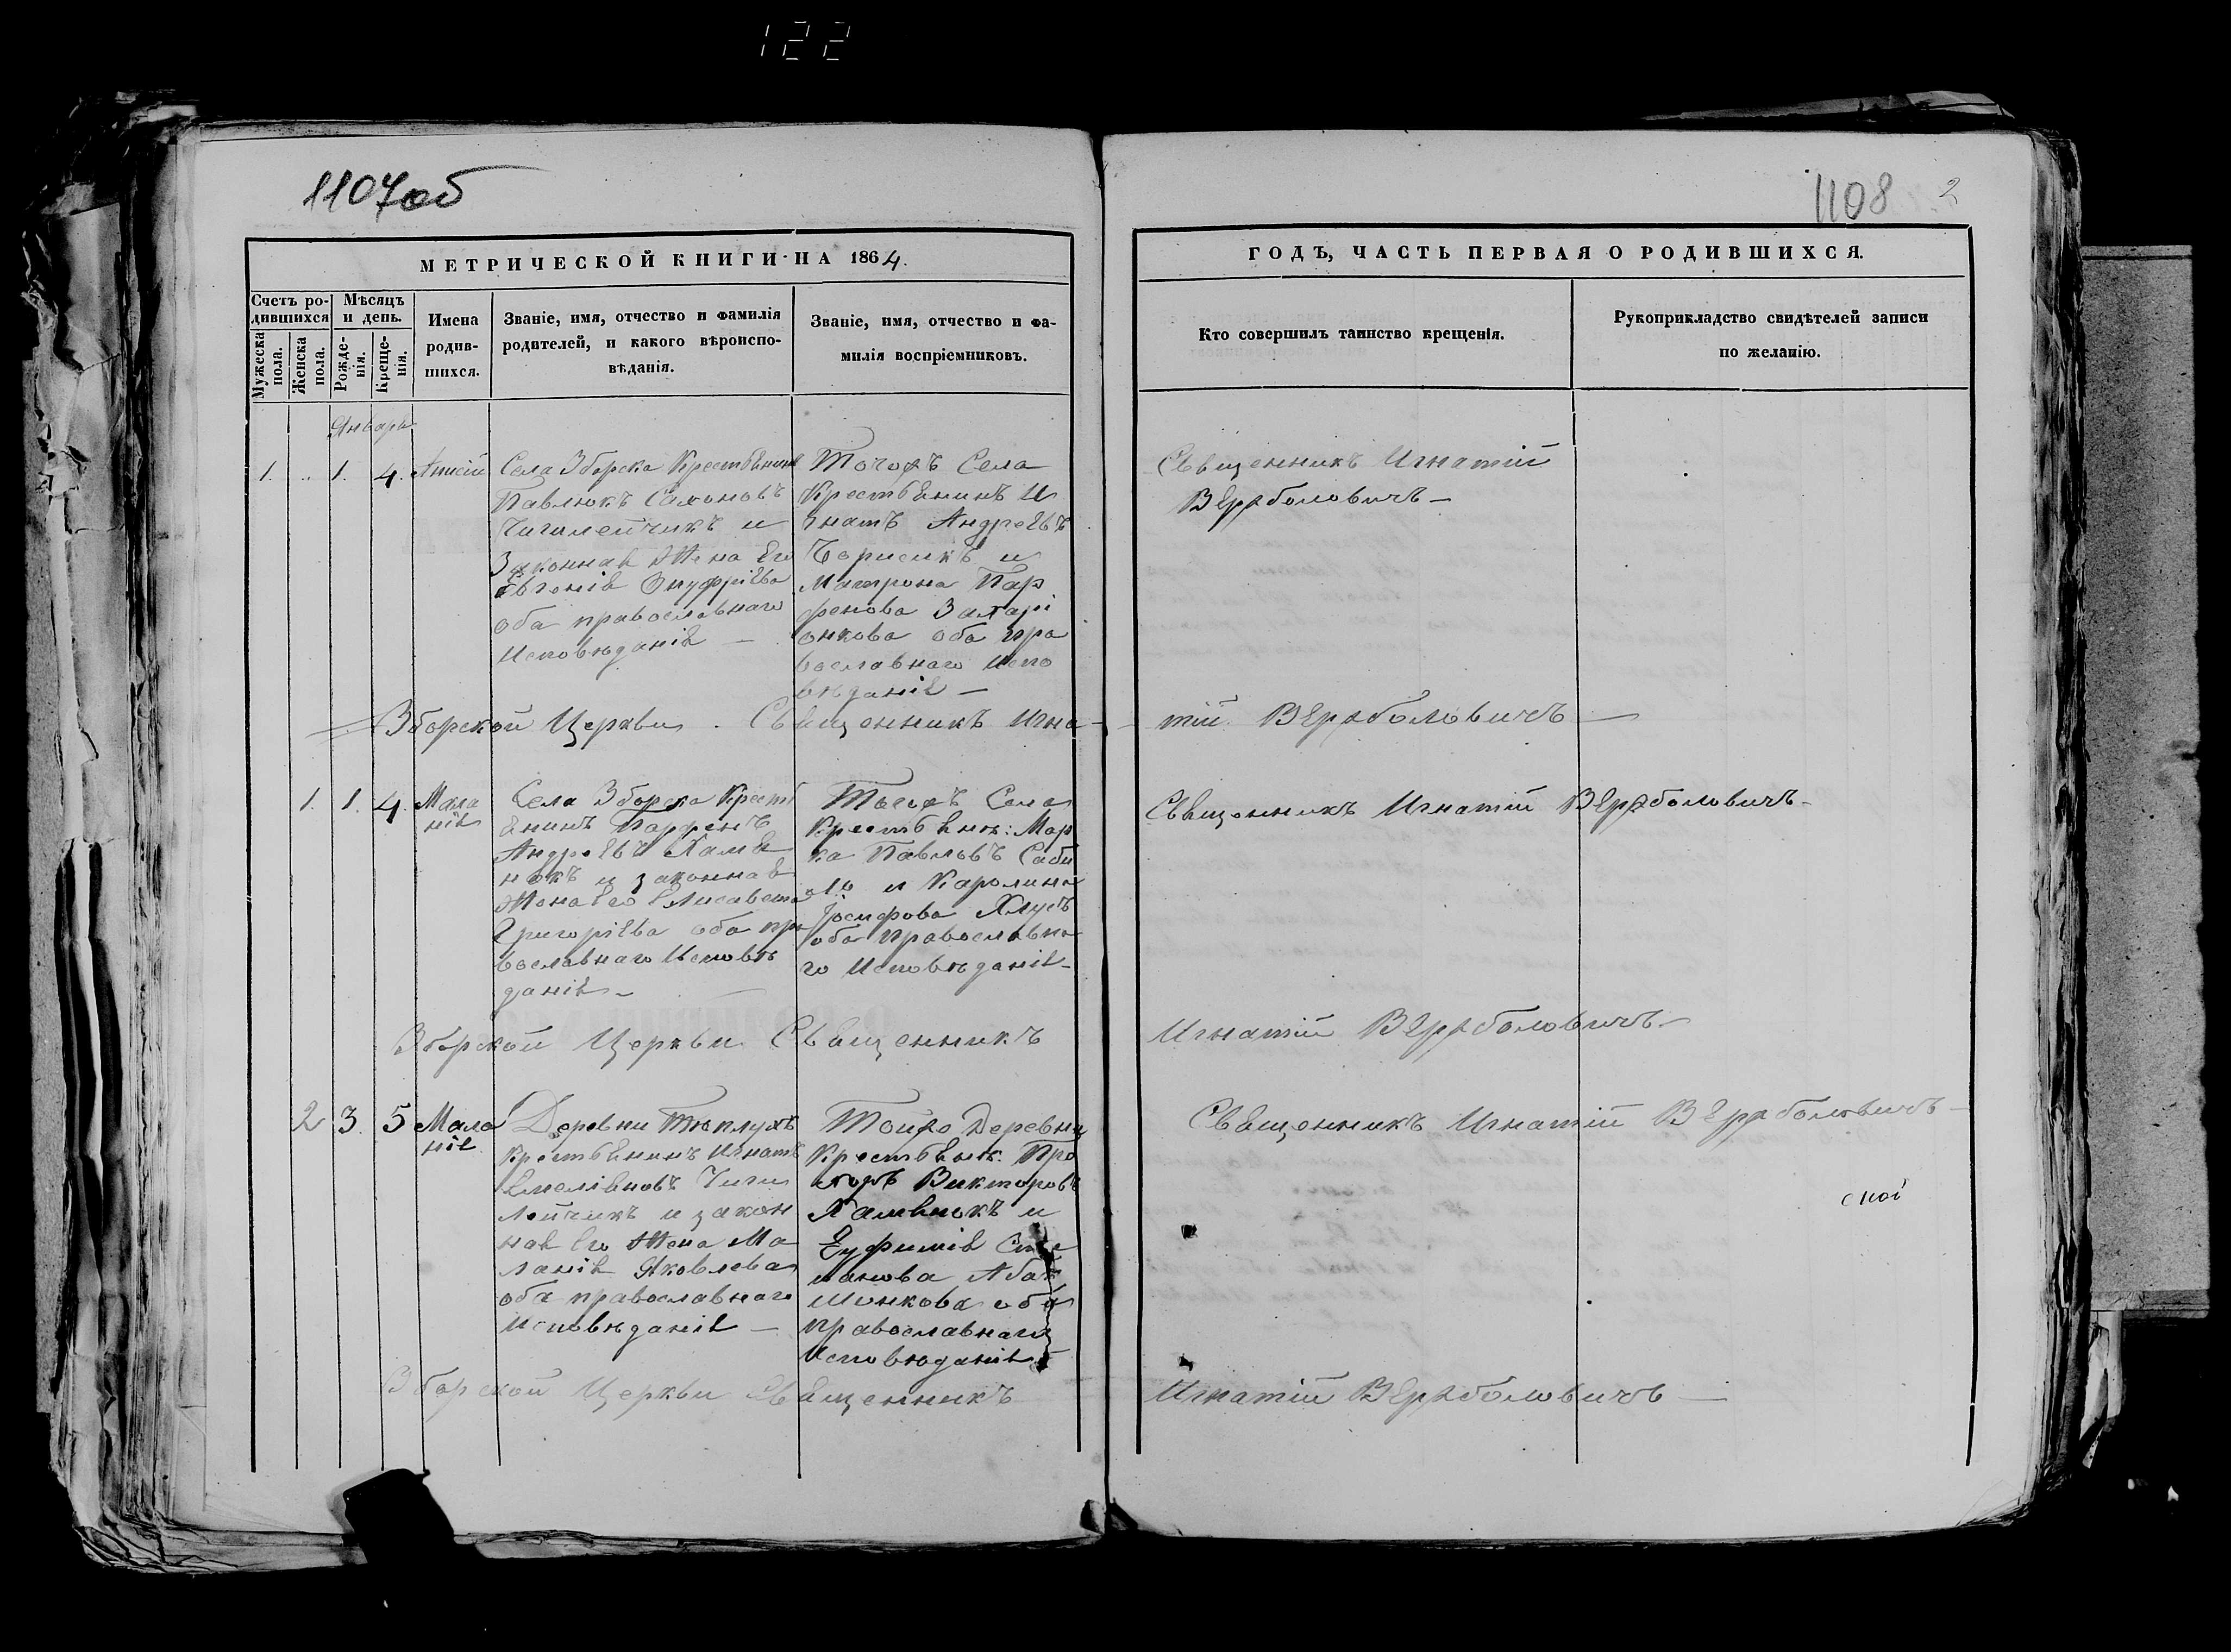 122
1107об
1108 2
МЕТРИЧЕСКОЙ КНИГИ НА 1864.
ГОДЪ, ЧАСТЬ ПЕРВАЯ О РОДИВШИХСЯ.
Счетъ ро-
дившихся
Мужеска
пола.
Женска
пола.
Мѣсяцъ
и день.
Рожде-
нія.
Креще-
нія.
Имена
родив-
шихся.
Званіе, имя, отчество и фамилія
родителей, и какого вѣроиспо-
вѣданія.
Званіе, имя, отчество и фа-
милія воспріемниковъ.
Кто совершилъ таинство крещенія.
Рукоприкладство свидѣтелей записи
по желанію.
Январь
1. .. 1. 4.
Села Зборска Крестьянинъ
Павлюкъ
Чигилейчикъ и
Законная Жена Его
Евгенія Онуфріева
оба православнаго
Исповѣданія —
Тогожъ Села
Крестьянинъ И
гнатъ Андреевъ
Борисикъ и
Матрона Пар
фенова Захарі
онкова оба пра
вославнаго Испо
вѣданія —
Священникъ Игнатій
Вержболовичъ —
Зборской Церкви. Священникъ Игна-
тій Вержболовичъ —
1. 1. 4. Мала
нія
Села Зборска Кресть
янинъ Парфенъ
Андреевъ
и законная
Жена Его Елисавета
Григоріева оба пра
вославнаго Исповѣ
данія —
Тогожъ Села
Крестьянк: Мар
ко Павловъ
и Каролина
Іосифова Хлусъ
оба православна
го Исповѣданія —
Священникъ Игнатій Вержболовичъ —
Зборской Церкви Священникъ
Игнатій Вержболовичъ —
2 3. 5 Мала
нія
Деревни Тѣплухъ
Крестьянинъ Игнатъ
Емеліановъ Чиги
лейчикъ и закон
ная Его Жена Ма
ланія Яковлева
оба православнаго
Исповѣданія —
Тойжо Деревни
Крестьяник: Про
хоръ Викторовъ
и
Еуфимія Сте
панова
оба
православнаго
Исповѣданія
Священникъ Игнатій Вержболовичъ —
ской
Зборской Церкви Священникъ
Игнатій Вержболовичъ —